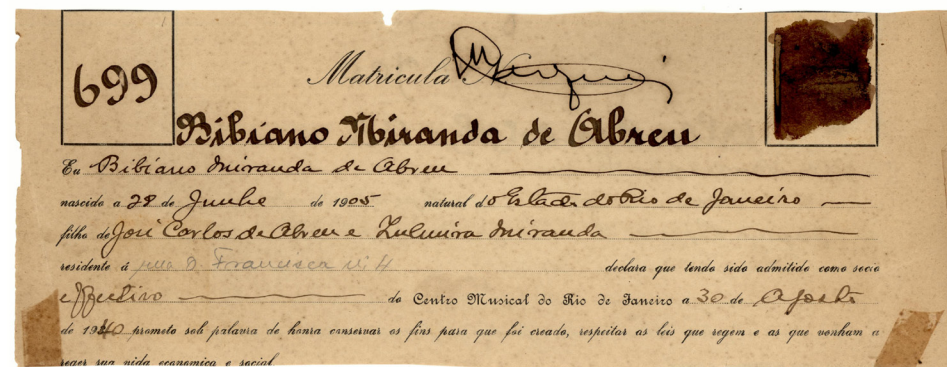 699
Matricula N.
Bibiano Miranda de Abreu
Eu Bibiano Miranda de Abreu
nascido a 28 de Junho de 1905 natural do Estado do Rio de Janeiro
filho de José Carlos de Abreu e Zulmira Miranda
residente á rua D. Francisca declara que tendo sido admitido como socio
effectivo do Centro Musical do Rio de Janeiro a 30 de Agosto
de 1920 prometo sob palavra de honra conservar os fins para que foi creado, respeitar as leis que regem e as que venham a
reger sua vida economica e social.